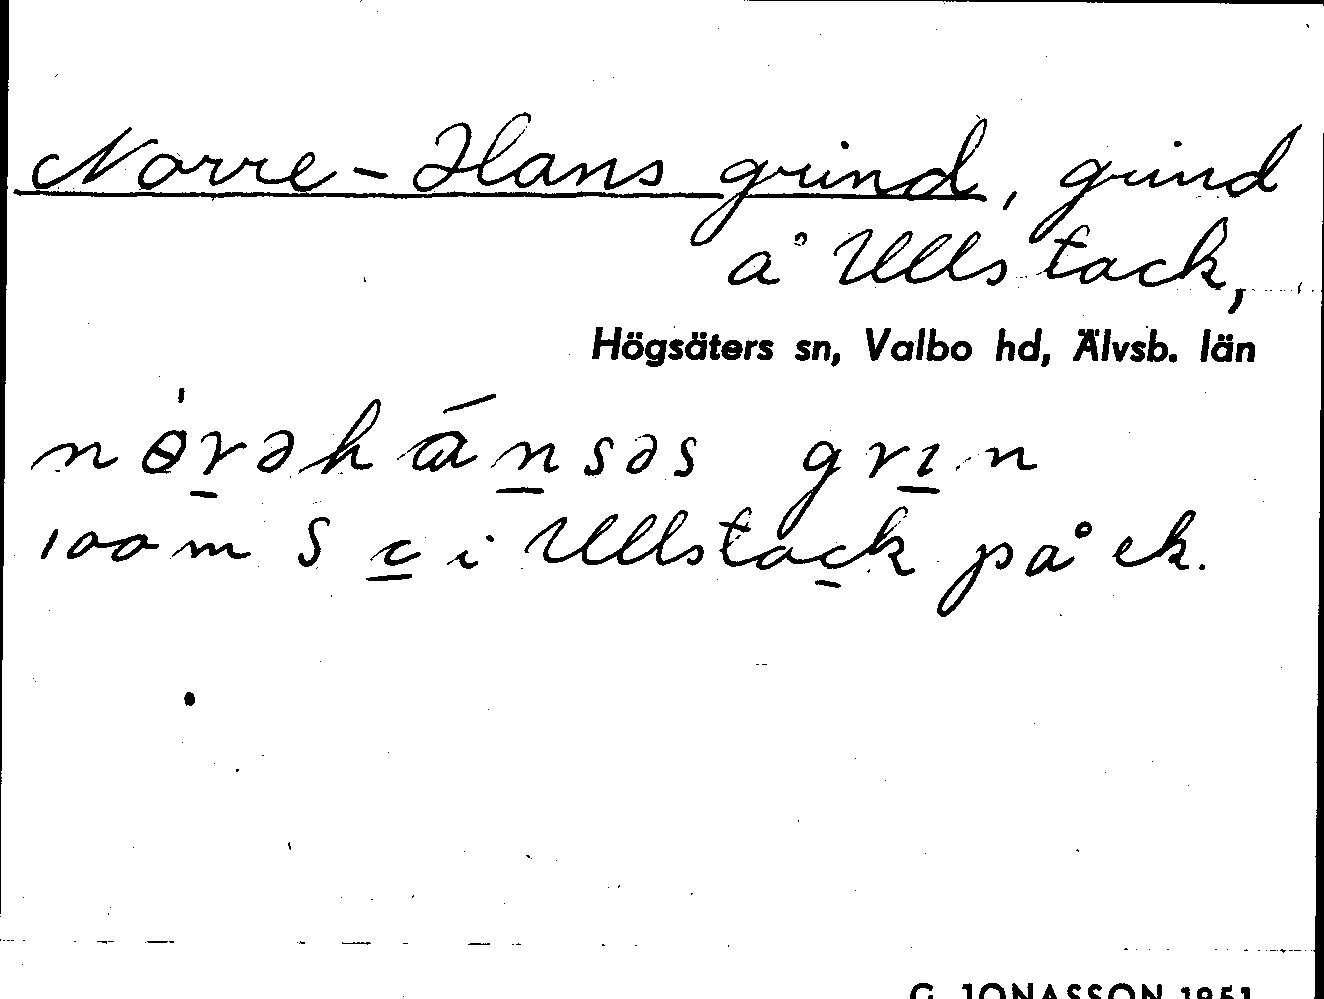 Norre-Hans grind, grind
å Ullstack,
Högsäters sn, Valbo hd, Älvsb. län
nɵ̀rəhánsəs grɪn
100 m S c i Ullstack på ek.
G. JONASSON 1951